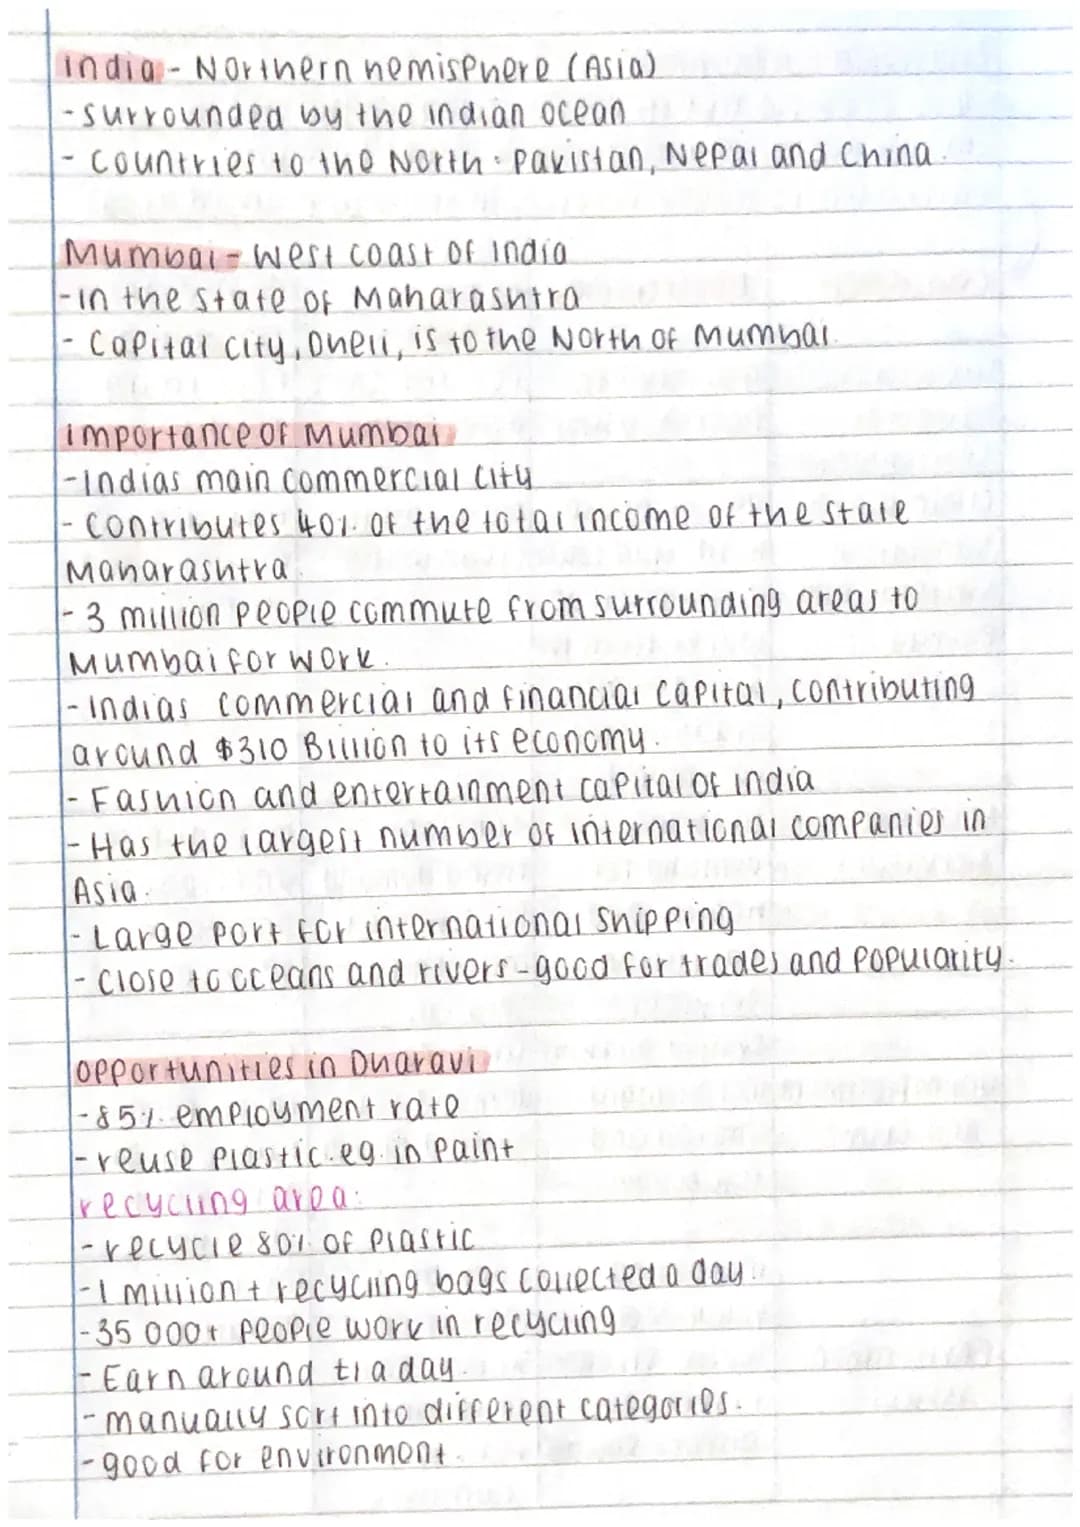 India - Northern hemisphere (Asia)
- surrounded by the indian ocean
- countries to the North: Pakistan, Nepal and China.
Mumbai - West coast of India
- in the state of Maharashtra
- Capital city, Dheli, is to the North of Mumbai.
importance of Mumbai
- Indias main commercial city
- contributes 40% of the total income of the state
Maharashtra.
- 3 million people commute from surrounding areas to
Mumbai for work.
- Indias commercial and financial capital, contributing
around $310 Billion to its economy.
- Fashion and entertainment capital of india
- Has the largest number of international companies in
Asia.
- Large port for international shipping
- close to oceans and rivers - good for trades and popularity.
opportunities in Dharavi
- 85% employment rate
- reuse plastic. eg. in paint
recycling area:
- recycle 80% of plastic
- 1 million + recycling bags collected a day.
- 35 000+ people work in recycling
- Earn around £1 a day.
- manually sort into different categories.
- good for environment.